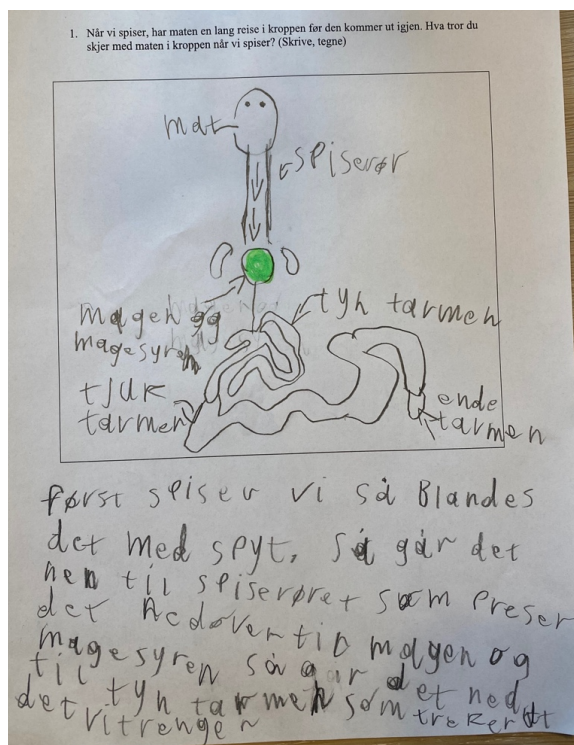 1. Når vi spiser, har maten en lang reise i kroppen før den kommer ut igjen. Hva tror du
skjer med maten i kroppen når vi spiser? (Skrive, tegne)
mat
spiserør
magen og
magesyren
tyn tarmen
tjuk
tarmen
ende
tarmen
først spiser vi så Blandes
det med spyt. Så går det
nen til spiserøret som preser
det nedover til magen og
til magesyren så går det ned
til tyn tarmen som treker ut
det vi trenger